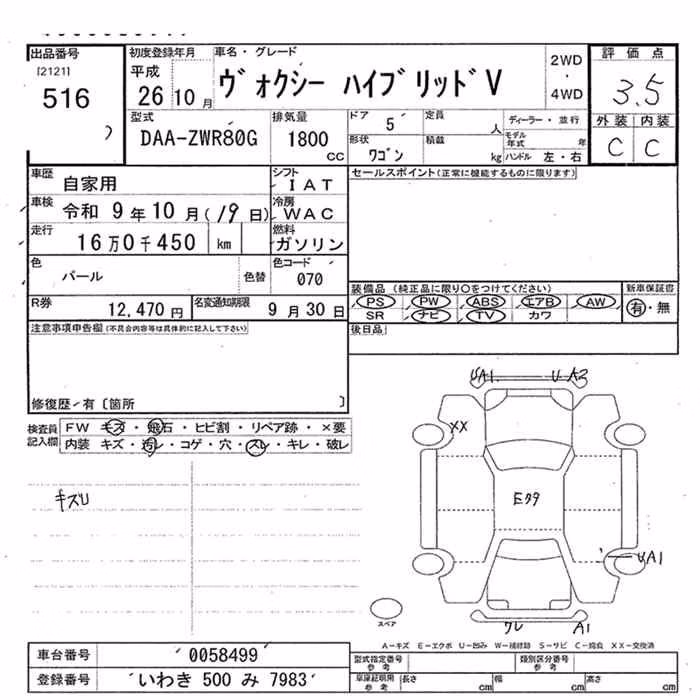 出品番号 初度登録年月 車名・グレード 評価点
[2121] 平成 2WD
516 26 10月 ヴォクシー ハイブリッドV ・ 3.5
4WD
型式 排気量 ドア 5 定員 人 ディーラー・並行 外装 内装
DAA-ZWR80G 1800 cc 形状 ワゴン 積載 kg モデル年式 年 C C
ハンドル 左・右
車歴 自家用 シフト IAT セールスポイント(正常に機能するものに限ります)
車検 令和 9年10月(19日) 冷房 WAC
走行 16万0千450 km 燃料 ガソリン
色 パール 色替 色コード 070
装備品 (純正品に限り○をつけてください) 新車保証書
R券 12,470円 名変通知期限 9月30日 PS PW ABS エアB AW 有・無
SR ナビ TV カワ
注意事項申告欄(不具合内容等は具体的に記入して下さい) 後日品
修復歴・有〔箇所 〕
UA1 U A2
検査員記入欄 FW キズ・飛石・ヒビ割・リペア跡・×要
内装 キズ・汚レ・コゲ・穴・スレ・キレ・破レ
XX
キズU
エクタ
UA1
スペア
ワレ A1
A-キズ E-エクボ U-凹み W-補修跡 S-サビ C-腐食 XX-交換済
車台番号 0058499 型式指定番号参考 類別区分番号参考
登録番号 いわき 500 み 7983 車庫証明用参考 長さ cm 幅 cm 高さ cm